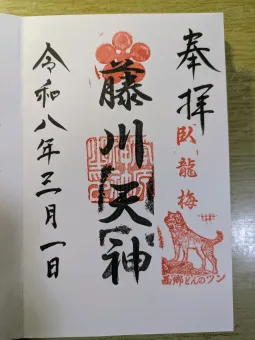 奉拝
臥龍梅
西郷どんのツン
藤川天神
令和八年三月一日